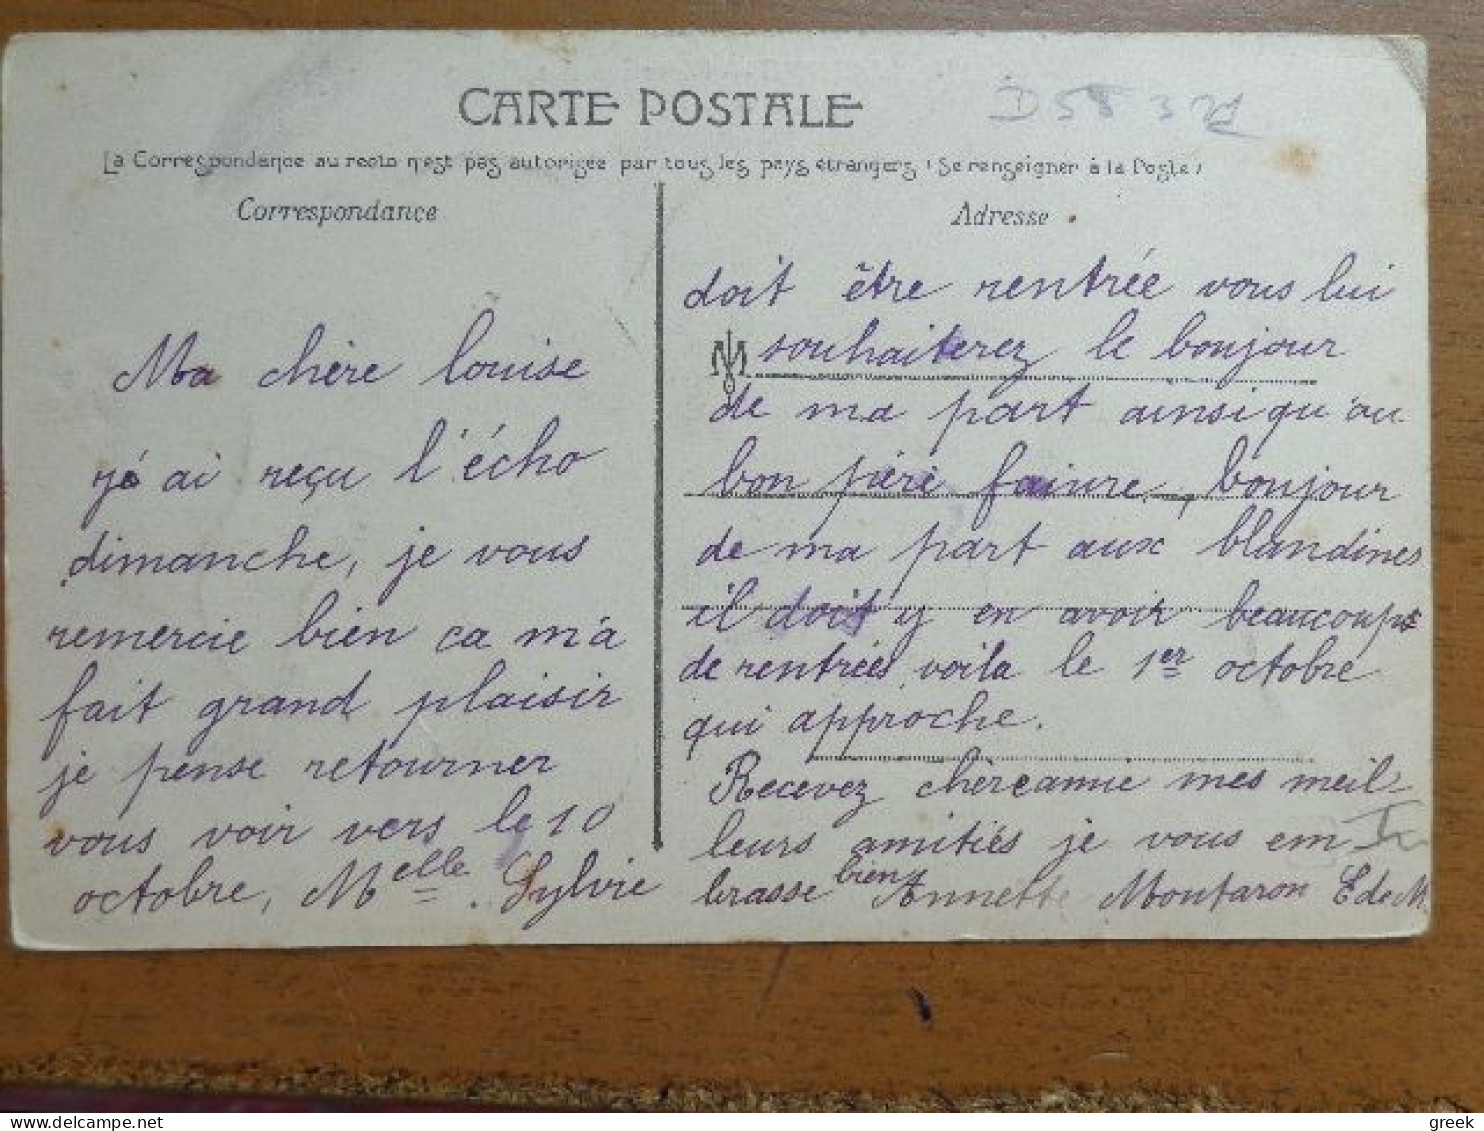 CARTE POSTALE
D 58 3
La Correspondance au recto n'est pas autorisée par tous les pays étrangers (Se renseigner à la Poste)
Correspondance
Ma chère louise
j'é ai reçu l'écho
dimanche, je vous
remercie bien ca m'a
fait grand plaisir
je pense retourner
vous voir vers le 10
octobre, Melle. Sylvie
Adresse
doit être rentrée vous lui
souhaiterez le bonjour
de ma part ainsi qu'au
bon père faivre, bonjour
de ma part aux blandines
il doit y en avoir beaucoup
de rentrées voila le 1er octobre
qui approche.
Recevez chère amie mes meil-
leurs amitiés je vous em
brasse bien Annette Montaron E de M
greek